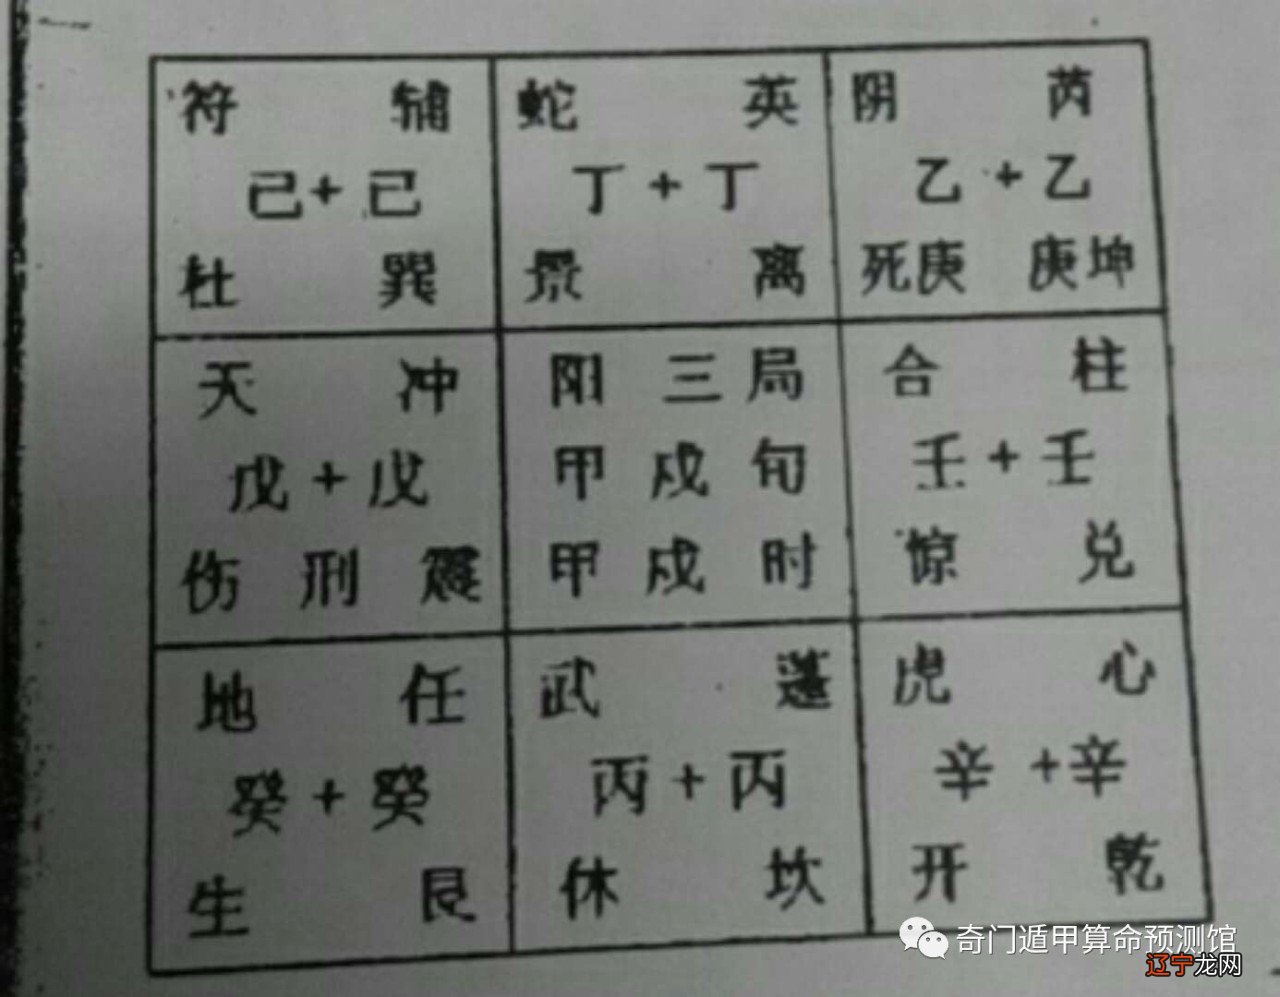 符 辅
己+己
杜 巽
蛇 英
丁+丁
景 离
阴 芮
乙+乙
死庚 庚坤
天 冲
戊+戊
伤 刑 震
阳 三 局
甲 戍 旬
甲 戍 时
合 柱
壬+壬
惊 兑
地 任
癸+癸
生 艮
武 蓬
丙+丙
休 坎
虎 心
辛+辛
开 乾
奇门遁甲算命预测馆
辽宁龙网